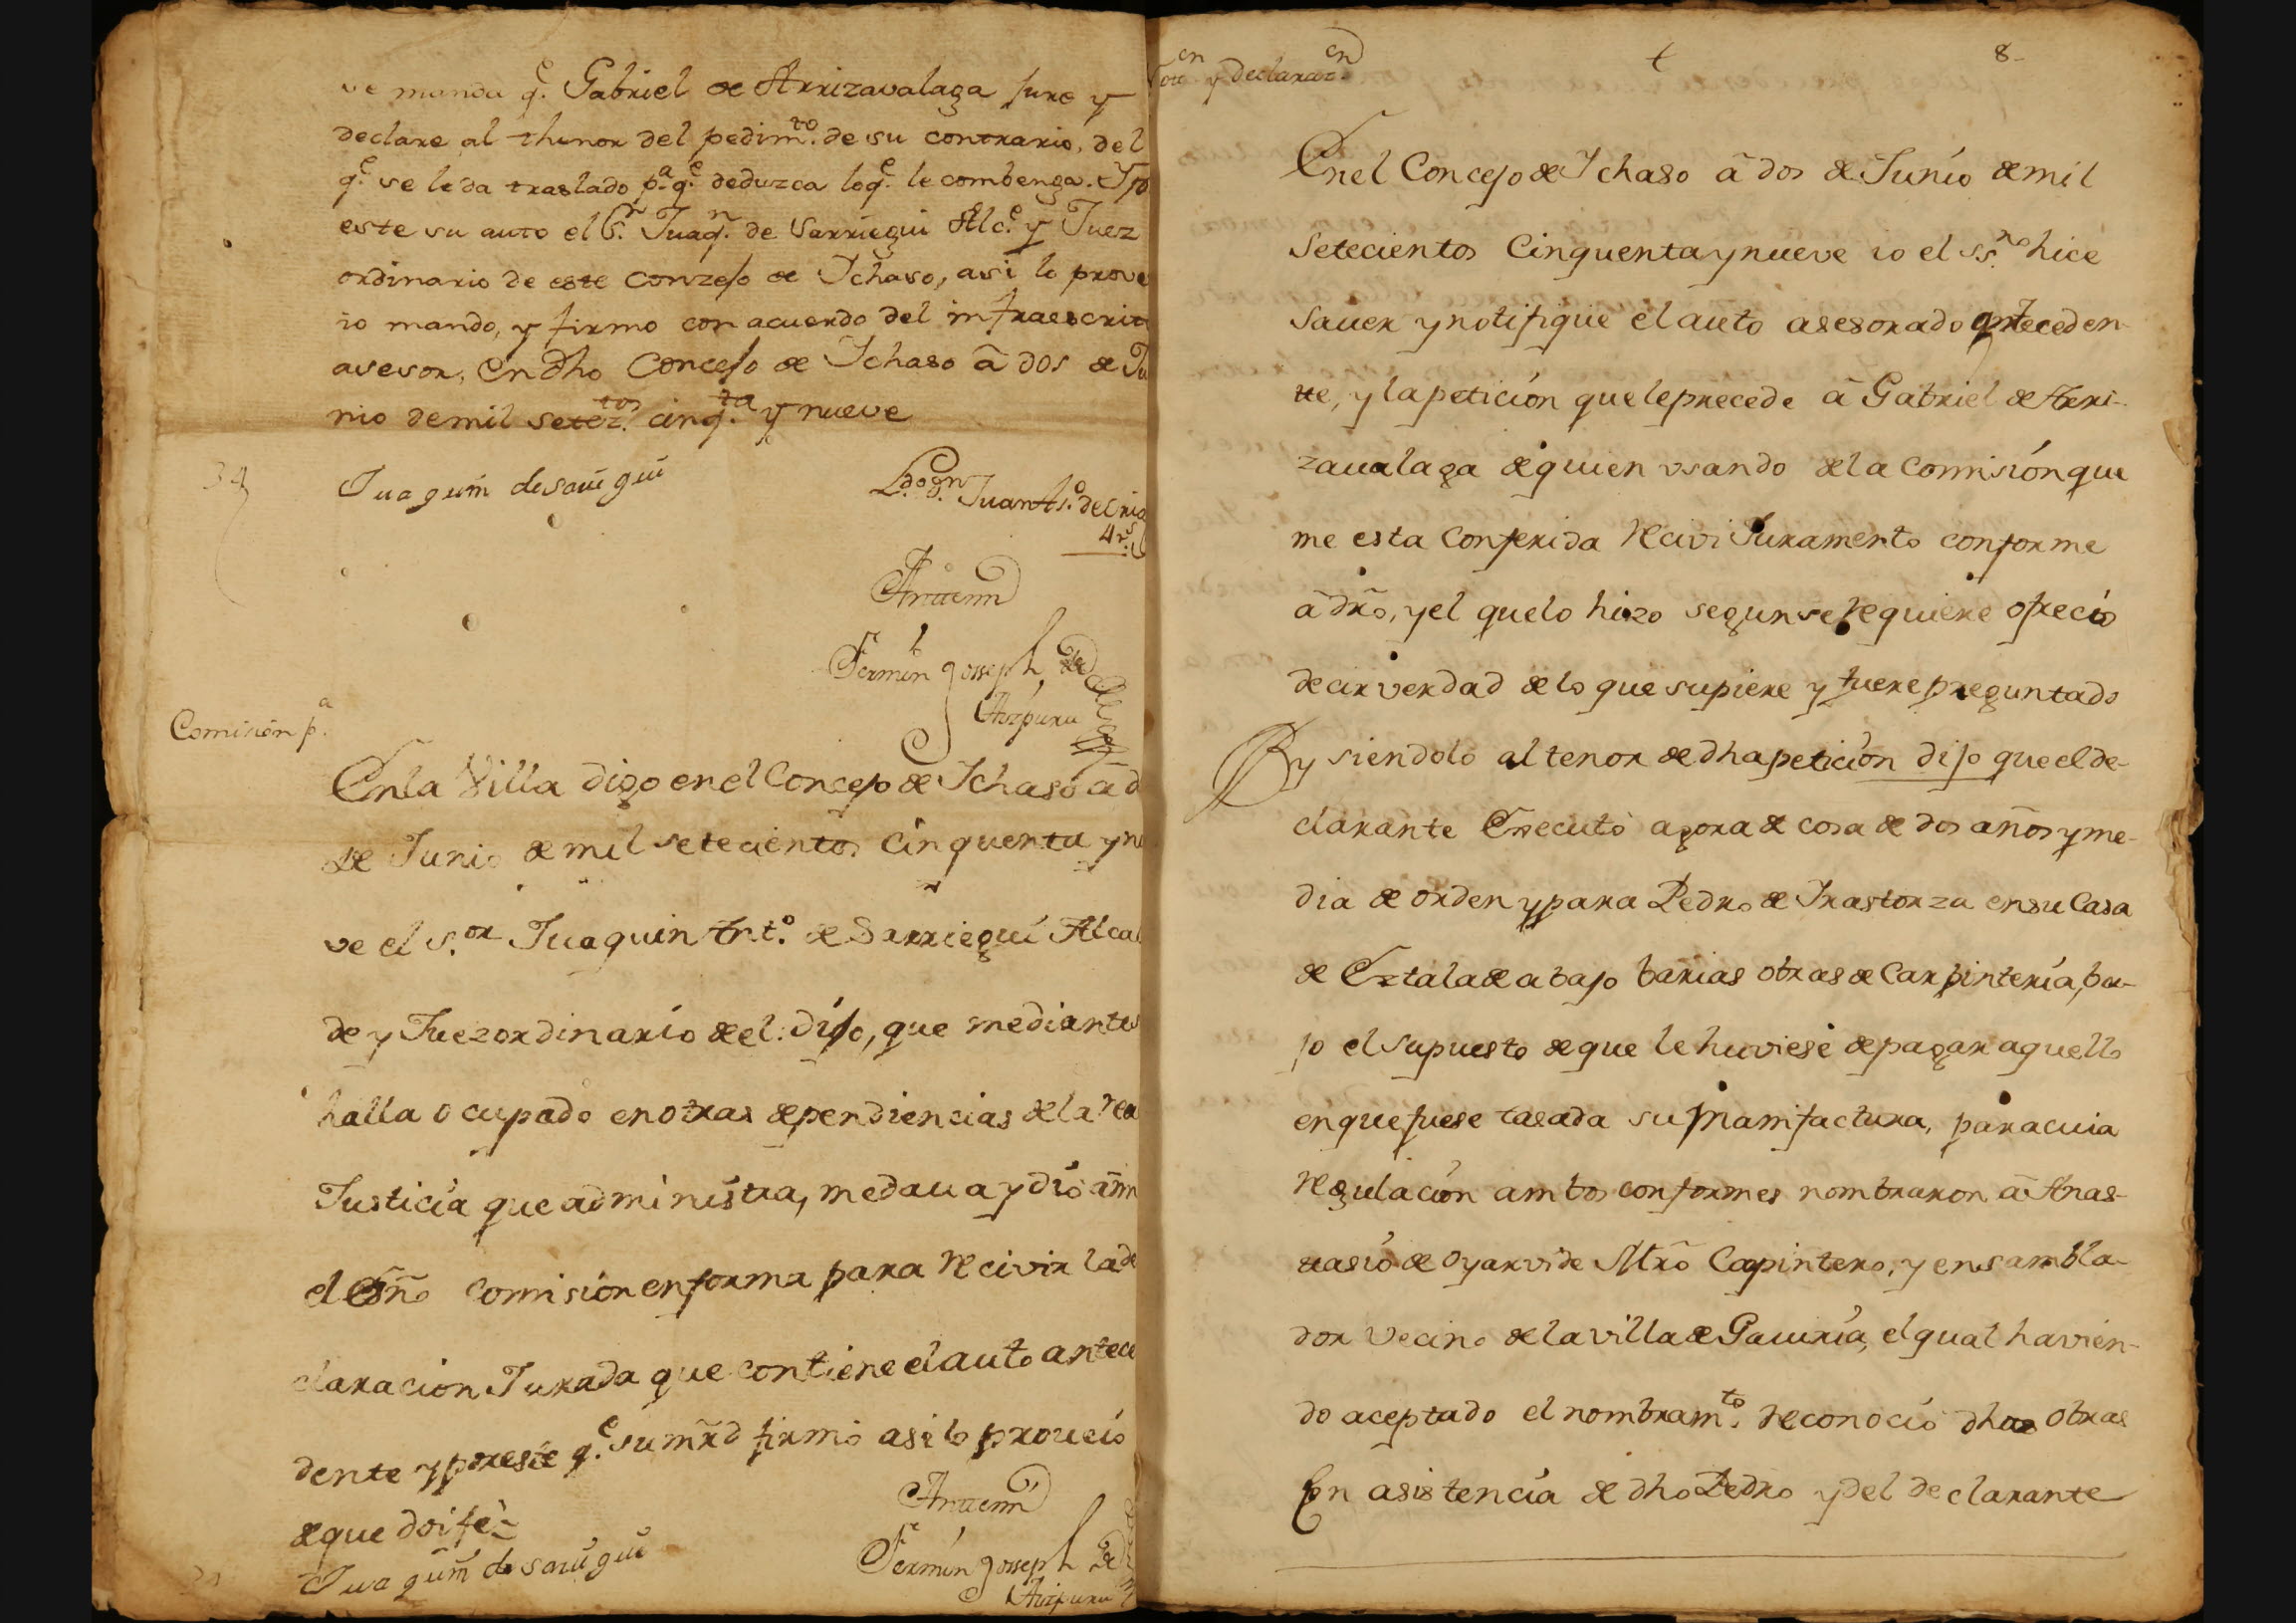 se manda q.e Gabriel de Arrizavalaga jure y
declare al thenor del pedim.to de su contrario, del
q.e se le da traslado p.a q.e deduzca lo q.e le combenga. Y po
este su auto el S.r Juaq.n de Sarriegui Alc.e y Juez
ordinario de este conzejo de Ichaso, asi lo prove
io mando, y firmo con acuerdo del infraescrit
asesor, en dho Concejo de Ichaso â dos de Ju
nio de mil setez.tos cinq.ta y nueve
Juaquin de Sariegui
L.do D.n Juan As.o del rio
4 r.s
Antemi
Fermin Joseph de
Aizpuru
Comision p.a
En la Villa digo en el Concejo de Ichaso a d
de Junio de mil setecientos cinquenta y nu
ve el s.or Juaquin Ant.o de Sarriegui Alcal
de y Juez ordinario de el: dijo, que mediante
halla ocupado en otras dependiencias de la rea
Justicia que administra, me dava y dió â mi
el Esño comision en forma para recivir la de
claracion Jurada que contiene el auto antece
dente y por este q.e su mrd firmó asi lo proveió
de que doi fe =
Juaquin de Sariegui
Antemi
Fermin Joseph de
Aizpuru
Not.on y Declaraz.on
t
8
En el Concejo de Ichaso â dos de Junio de mil
setecientos cinquenta y nueve io el ss.no hice
saver y notifique el auto asesorado anteceden-
te, y la petición que le precede â Gabriel de Arri-
zavalaga de quien usando de la comisión que
me esta conferida recivi Juramento conforme
â dro, y el que lo hizo segun se requiere ofreció
decir verdad de lo que supiere y fuere preguntado
R y siendolo al tenor de dha petición dijo que el de-
clarante Executó agora de cosa de dos años y me-
dia de orden y para Pedro de Irastorza en su Casa
de Eztala de abajo barias obras de Carpintería, ba-
jo el supuesto de que le huviese de pagar aquello
en que fuese tasada su manifactura, para cuia
regulación ambos conformes nombraron â Anas-
tasio de Oyarvide Mrô Capintero, y ensambla-
dor Vecino de la villa de Gaviría, el qual havien-
do aceptado el nombram.to reconoció dhas obras
En asistencia de dho Pedro y del declarante